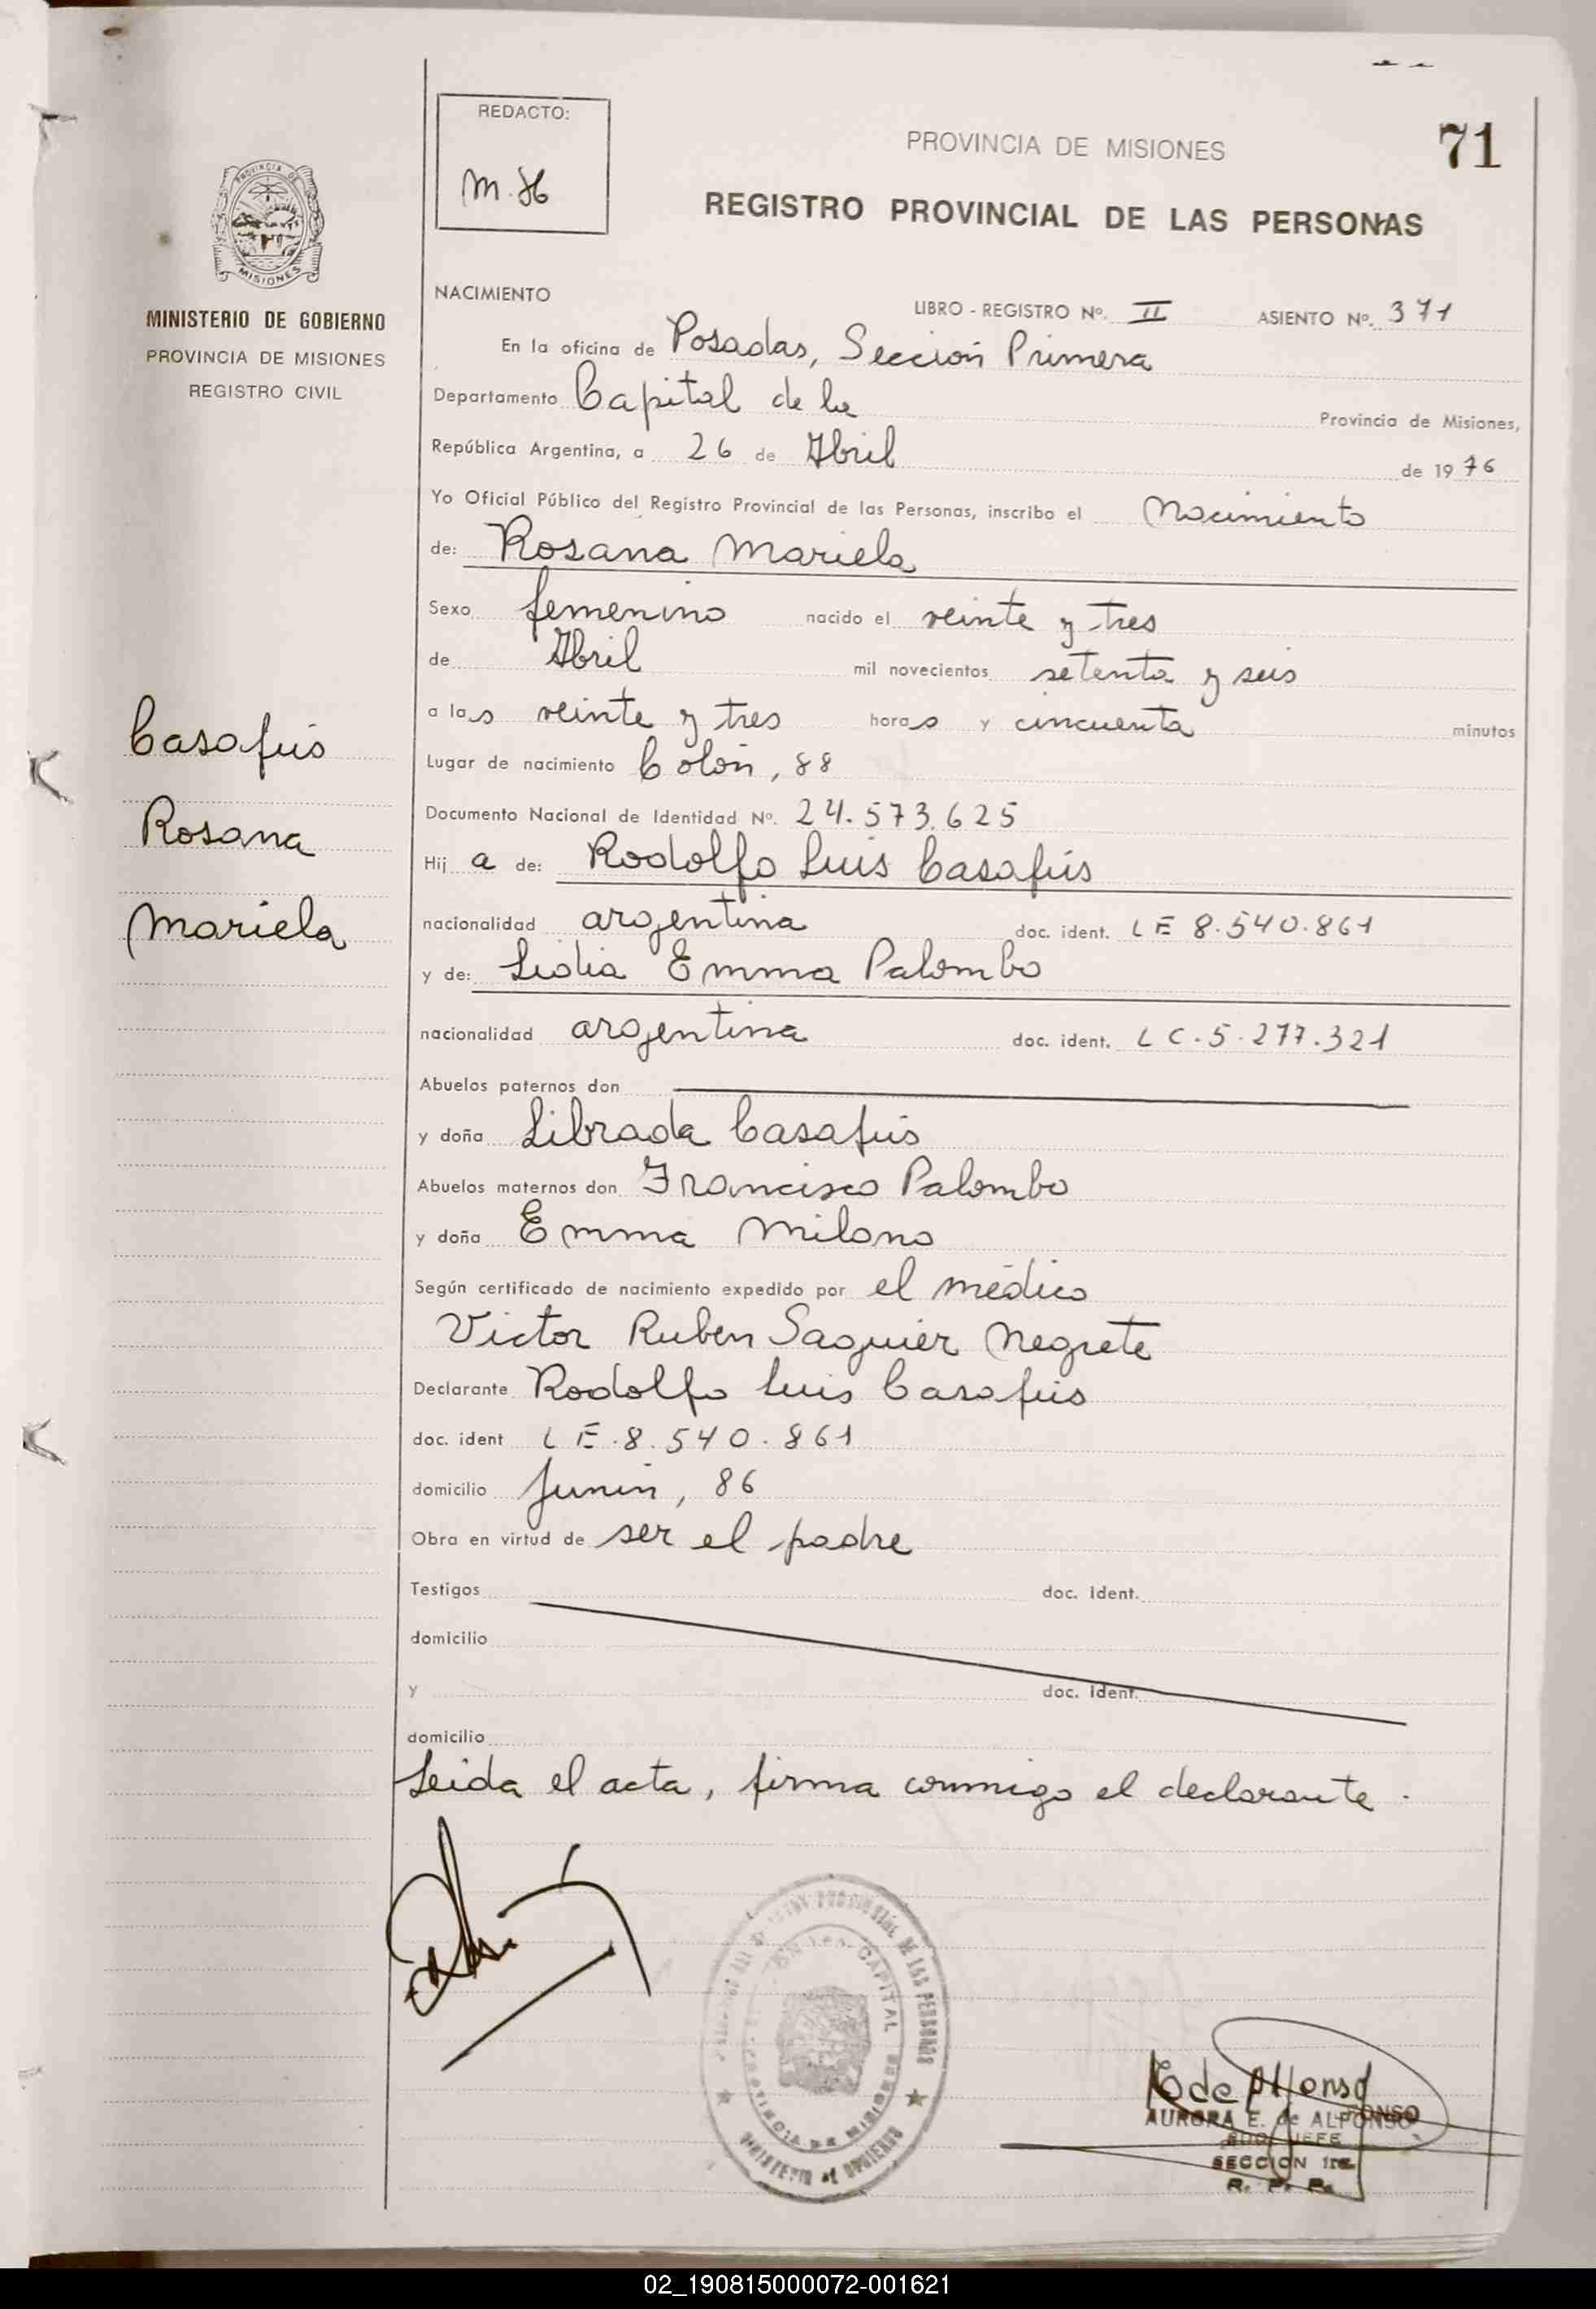 REDACTO:
M. H
PROVINCIA DE MISIONES
71
REGISTRO PROVINCIAL DE LAS PERSONAS
PROVINCIA DE
MISIONES
MINISTERIO DE GOBIERNO
PROVINCIA DE MISIONES
REGISTRO CIVIL
Casafús
Rosana
Mariela
NACIMIENTO
LIBRO - REGISTRO Nº. II ASIENTO Nº. 371
En la oficina de Posadas, Sección Primera
Departamento Capital de la Provincia de Misiones,
República Argentina, a 26 de Abril de 1976
Yo Oficial Público del Registro Provincial de las Personas, inscribo el Nacimiento
de: Rosana Mariela
Sexo femenino nacido el veinte y tres
de Abril mil novecientos setenta y seis
a las veinte y tres horas y cincuenta minutos
Lugar de nacimiento Colón, 88
Documento Nacional de Identidad Nº. 24.573.625
Hij a de: Rodolfo Luis Casafús
nacionalidad argentina doc. ident. LE 8.540.861
y de: Lidia Emma Palombo
nacionalidad argentina doc. ident. LC.5.277.321
Abuelos paternos don
y doña Librada Casafús
Abuelos maternos don Francisco Palombo
y doña Emma Milano
Según certificado de nacimiento expedido por el médico
Victor Ruben Saguier Negrete
Declarante Rodolfo Luis Casafús
doc. ident LE.8.540.861
domicilio Junín, 86
Obra en virtud de ser el padre
Testigos doc. ident.
domicilio
y doc. ident.
domicilio
Leida el acta, firma conmigo el declarante.
PROVINCIAL DE LAS PERSONAS
CAPITAL
PROVINCIA DE MISIONES
MINISTERIO de GOBIERNO
E de Alfonso
AURORA E. de ALFONSO
SUB JEFE
SECCION 1ra
R. P. Ps.
02_190815000072-001621